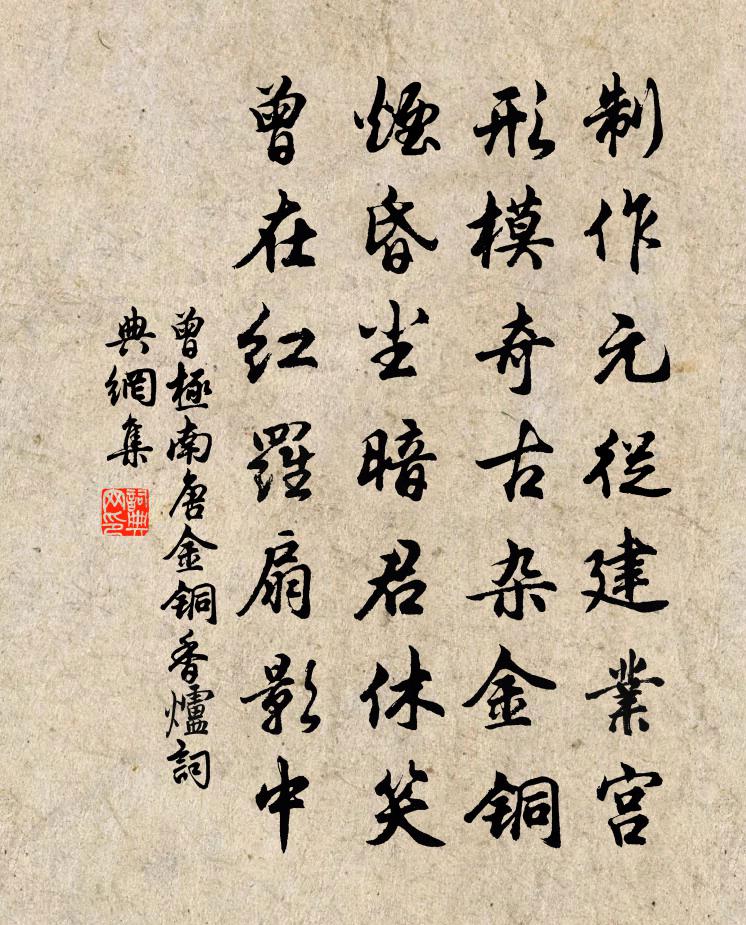 制作元從建業宮
形模奇古杂金銅
煙昏尘暗君休笑
曾在红羅扇影中
曾極南唐金銅香爐詞
典網集
詞典网印